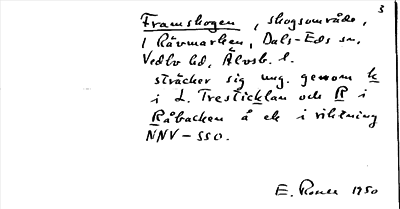 3
Framskogen, skogsområde,
i Rävmarken, Dals-Eds sn,
Vedbo hd, Älvsb. l.
sträcker sig ung. genom k
i L. Tresticklan och R i
Råbacken å ek i riktning
NNV – SSO.
E. 1950